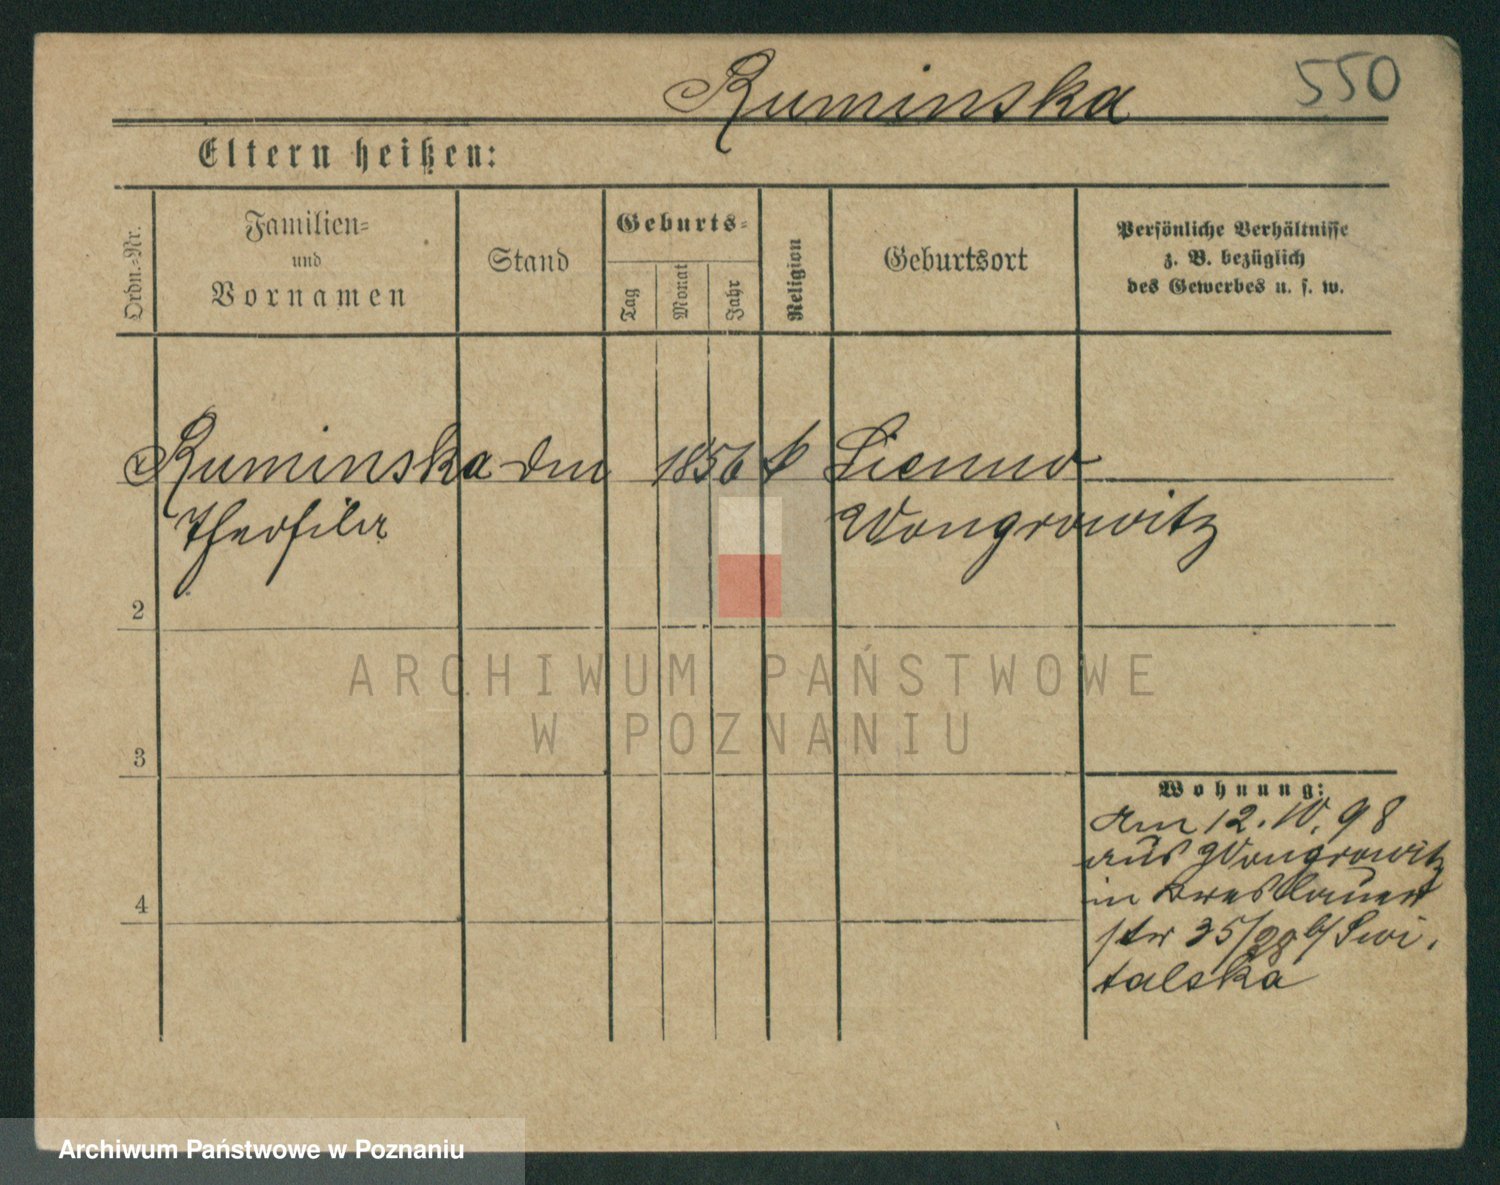 Ruminska 550
Eltern heißen:
Ordn.-Nr.
Familien-
und
Vornamen
Stand
Geburts-
Tag
Monat
Jahr
Religion
Geburtsort
Persönliche Verhältnisse
z. B. bezüglich
des Gewerbes u. s. w.
Ruminska 1856 k Sienno
Theofila Wongrowitz
2
3
ARCHIWUM PAŃSTWOWE
W POZNANIU
Wohnung:
Am 12. IV. 98
aus Wongrowitz
in Breslauer
str 35/38 b/ Swi
talska
4
Archiwum Państwowe w Poznaniu